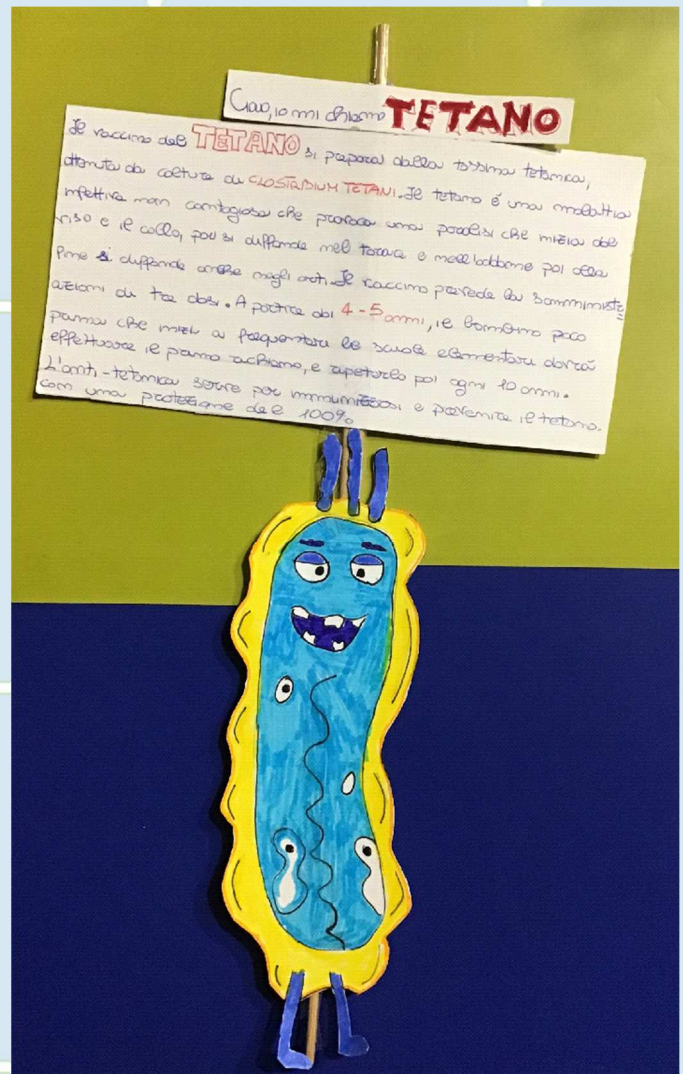 Ciao, io mi chiamo TETANO
Il vaccino del TETANO si prepara dalla tossina tetanica,
ottenuta da colture di CLOSTRIDIUM TETANI. Il tetano é una malattia
infettiva non contagiosa che provoca una paralisi che inizia dal
viso e il collo, poi si diffonde nel torace e nell'addome poi alla
fine si diffonde anche negli arti. Il vaccino prevede la somministr=
azioni di tre dosi. A partire dai 4-5 anni, il bambino poco
prima che inizi a frequentare le scuole elementari dovrá
effettuare il primo richiamo, e ripeterlo poi ogni 10 anni.
L'anti-tetanica serve per immunizzarsi e prevenire il tetano.
con una protezione del 100%